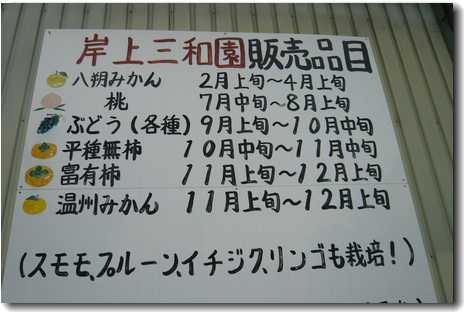 岸上三和園販売品目
八朔みかん 2月上旬～4月上旬
桃 7月中旬～8月上旬
ぶどう(各種) 9月上旬～10月中旬
平種無柿 10月中旬～11月中旬
富有柿 11月上旬～12月上旬
温州みかん 11月上旬～12月上旬
(スモモ、プルーン、イチジク、リンゴも栽培!)